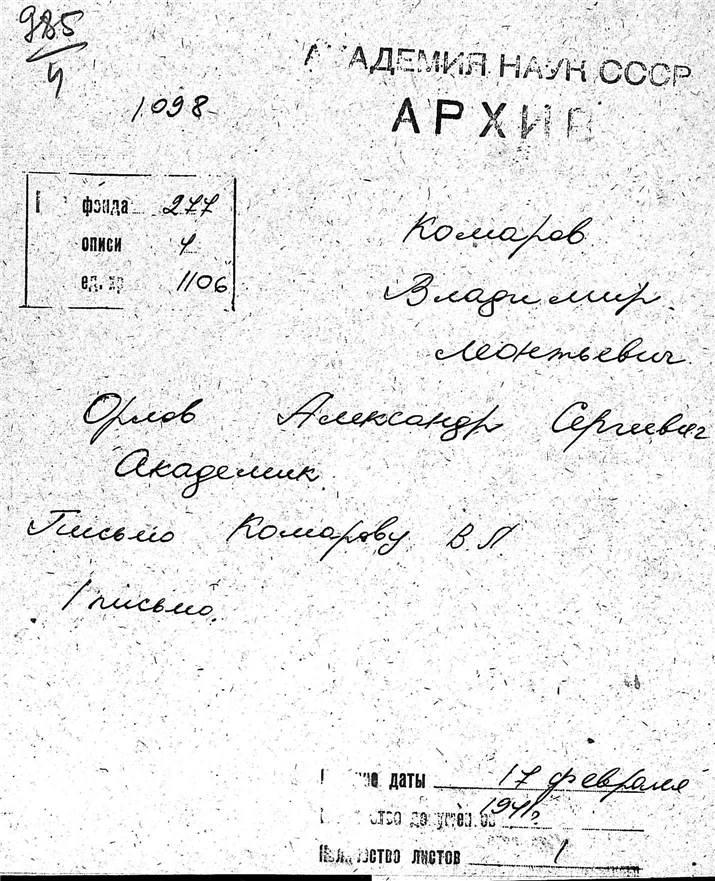 985
4
1098
АКАДЕМИЯ НАУК СССР
АРХИВ
фонда 277
описи 4
ед. хр 1106
Комаров
Владимир
Леонтьевич
Орлов Александр Сергеевич
Академик.
Письмо Комарову В.Л
1 письмо.
даты 17 февраля
1941г.
Количество листов 1